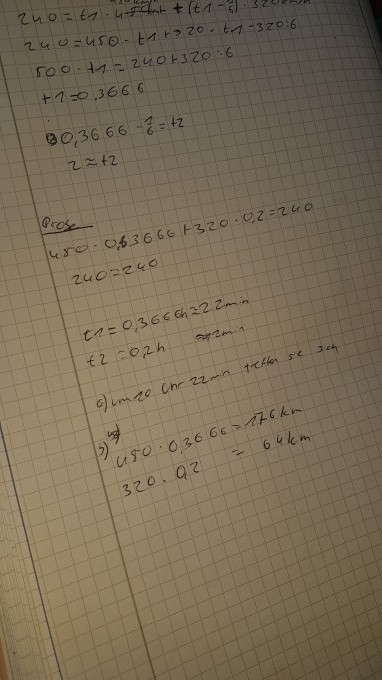 240 = t1 · 450 + (t1 - 1/6) · 320
240 = 450 · t1 + 320 · t1 - 320:6
500 · t1 = 240 + 320 : 6
t1 = 0,3666
0,3666 - 1/6 = t2
2 ≈ t2
Probe
450 · 0,3666 + 320 · 0,2 = 240
240 = 240
t1 = 0,3666h ≈ 22min
t2 = 0,2h ≈ 12min
a) um 20 Uhr 22min treffen sie sich
b)
450 · 0,3666 = 176km
320 · 0,2 = 64km